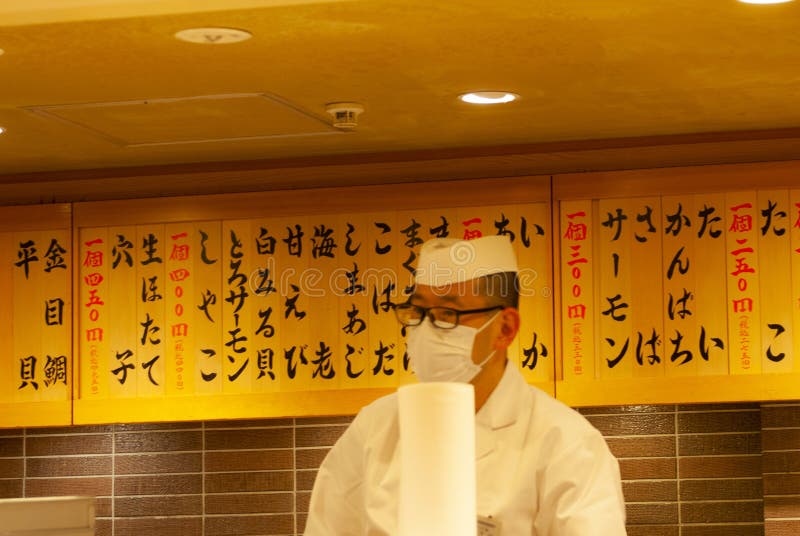 たこ
一個二五〇円(税込二七五円)
たい
かんぱち
さば
サーモン
一個三〇〇円(税込三三〇円)
いか
あ
一個
ま
まぐ
こはだ
しまあじ
海老
甘えび
白みる貝
とろサーモン
しゃこ
一個四〇〇円(税込四四〇円)
生ほたて
穴子
一個四五〇円(税込四九五円)
金目鯛
平貝